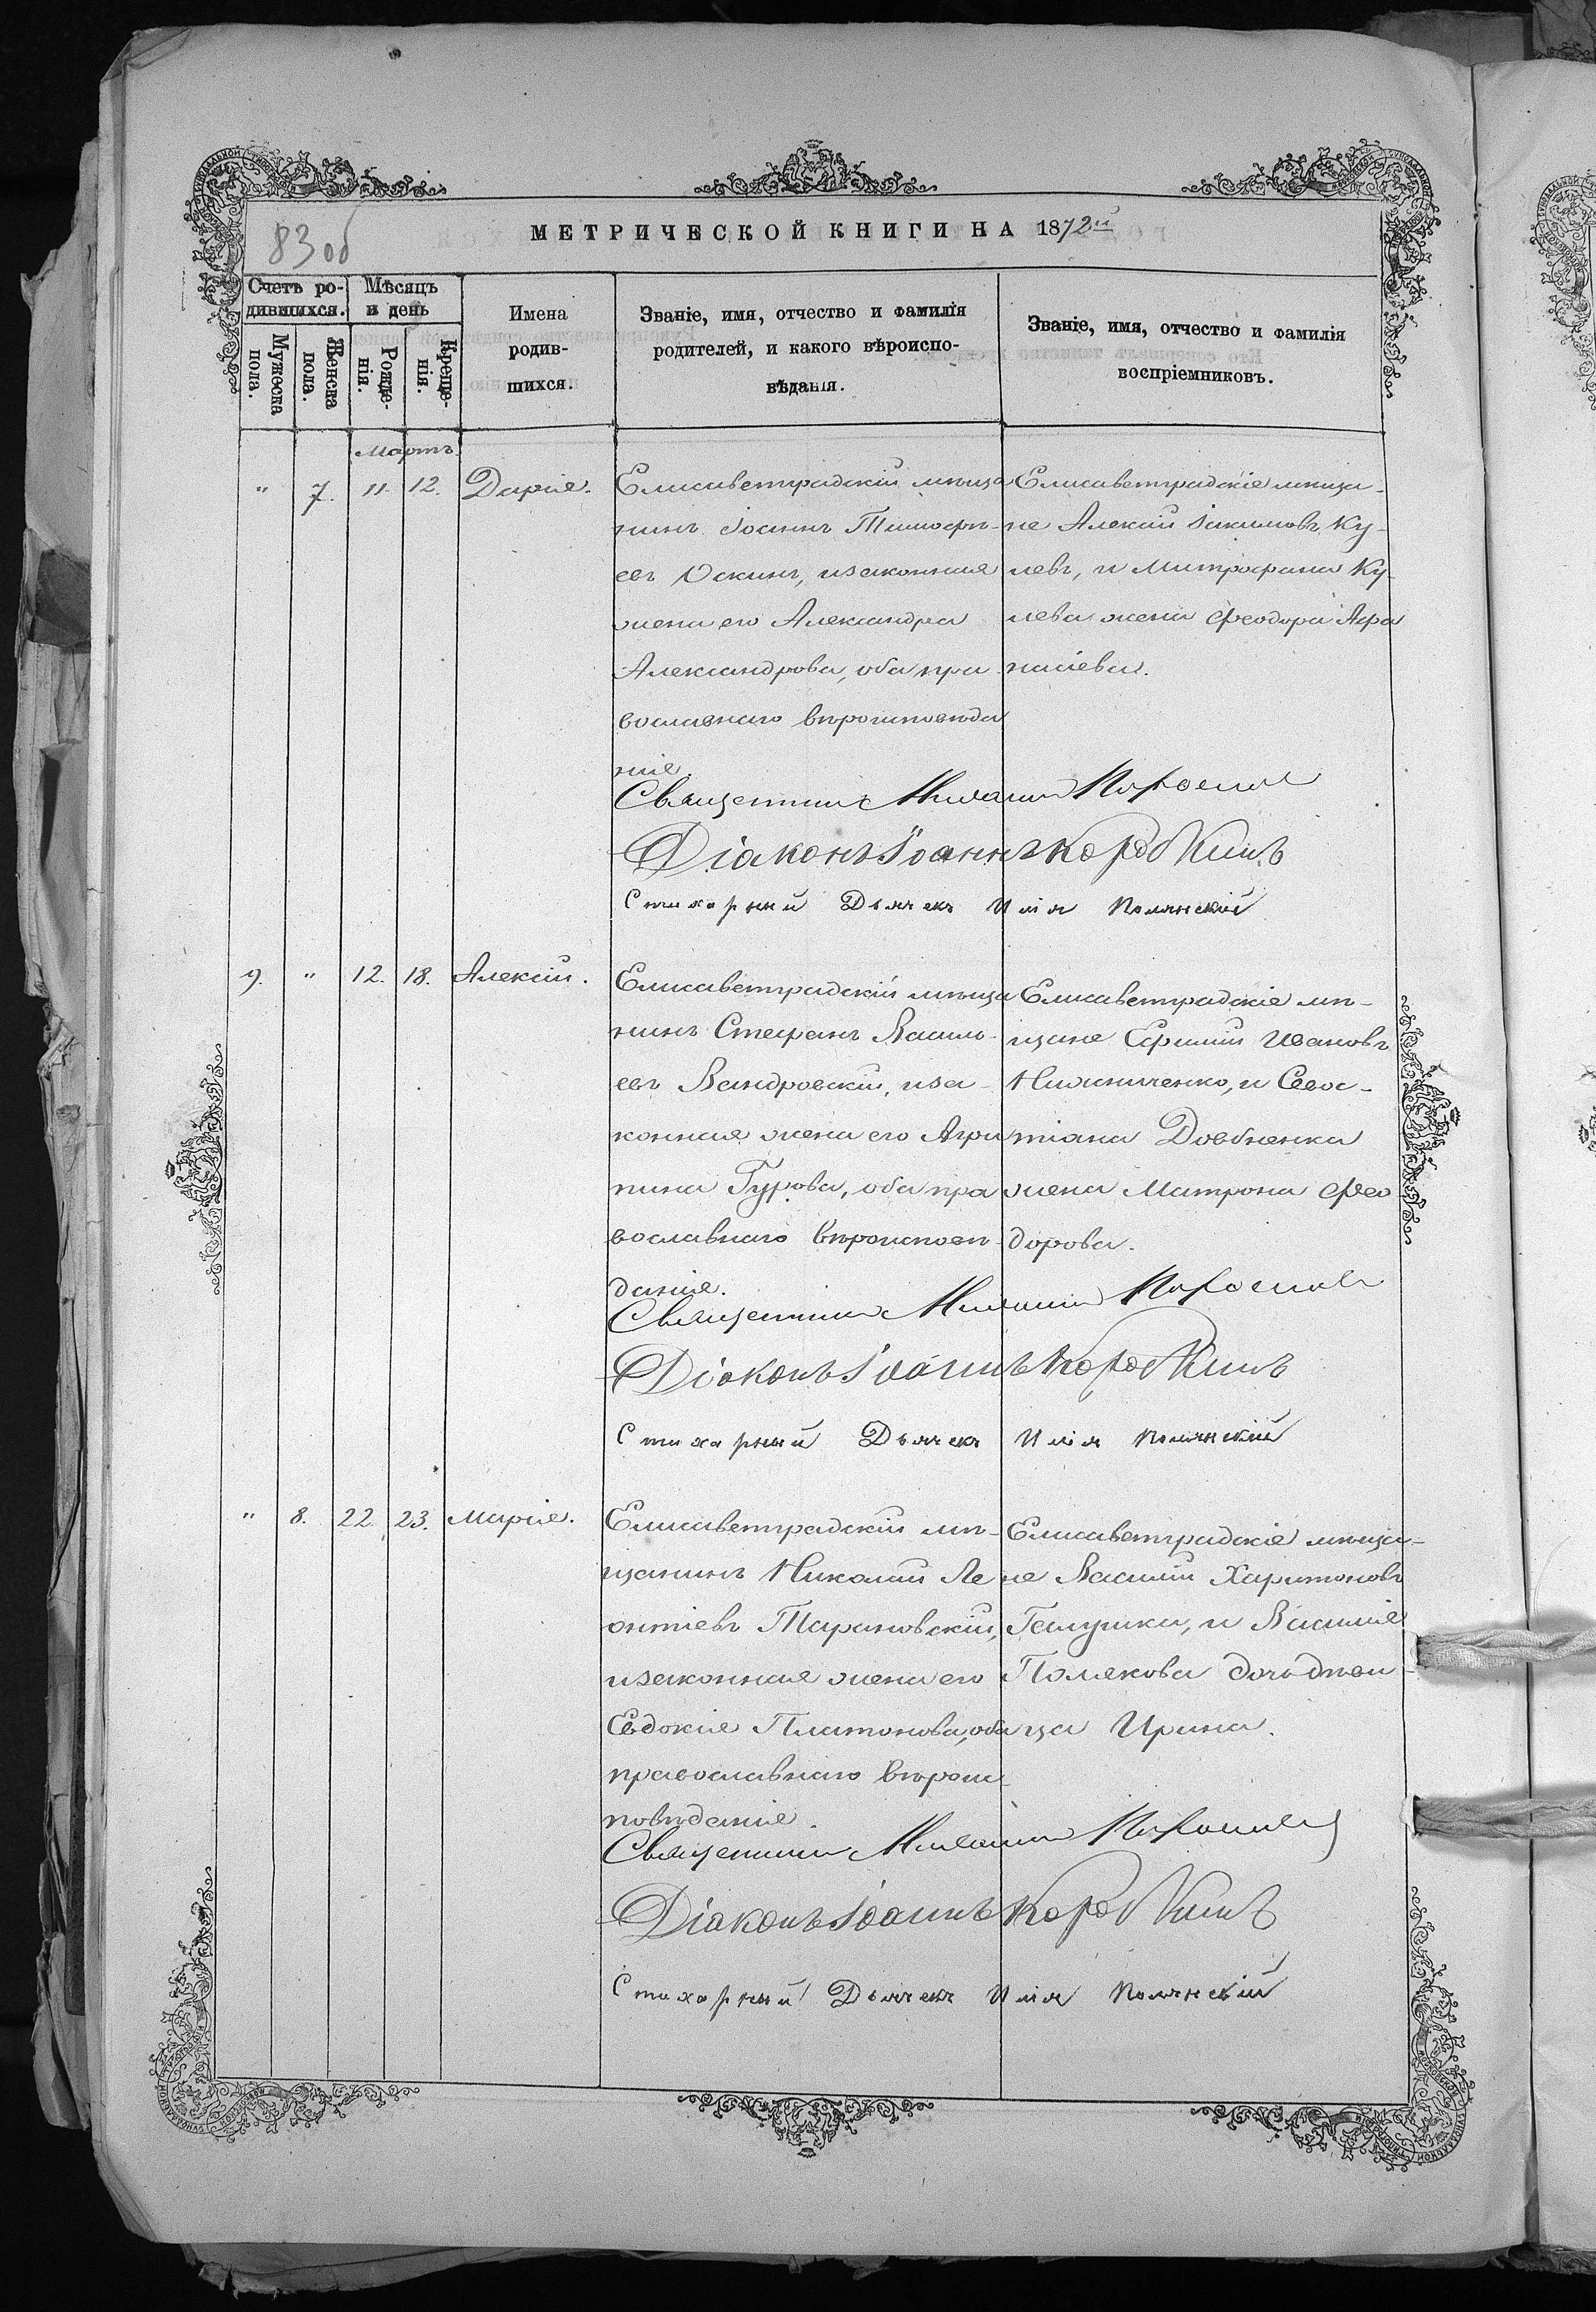 83 об
МЕТРИЧЕСКОЙ КНИГИ НА 1872й
Счетъ ро-
дившихся.
Мѣсяцъ
и день
Мужеска
пола.
Женска
пола.
Рожде-
нія.
Креще-
нія.
Имена
родив-
шихся.
Званіе, имя, отчество и фамилія
родителей, и какого вѣроиспо-
вѣданія.
Званіе, имя, отчество и фамилія
воспріемниковъ.
Мартъ
" 7. 11. 12. Дарія.
Елисаветградскій мѣща
нинъ Іоаннъ Тимофѣ-
евъ Оскинъ, изаконная
жена его Александра
Александрова, оба пра
вославнаго вѣроисповѣда
нія.
Елисаветградскіе мѣща-
не Алексій Іакимовъ Ку-
левъ, и Митрофана Ку-
лева жена Феодора Афа
насіева.
Священникъ
Діаконъ Іоаннъ Коробкинъ
Стихарный Дьячекъ Илія Полянскій
9. " 12. 18. Алексій.
Елисаветградскій мѣща
нинъ Стефанъ Василь-
евъ Вандровскій, иза-
конная жена его Агри
пина Гурова, оба пра
вославнаго вѣроисповѣ-
данія.
Елисаветградскіе мѣ-
щане Ефимій Ивановъ
Ничиниченко, и Севос-
тіана Довбненка
жена Матрона Фео
дорова.
Священникъ
Діаконъ Іоаннъ Коробкинъ
Стихарный Дьячекъ Илія Полянскій
" 8. 22. 23. Марія.
Елисаветградскій мѣ-
щанинъ Николай Ле
онтіевъ Тарановскій,
изаконная жена его
Евдокія Платонова, оба
православнаго вѣроис-
повѣданія.
Елисаветградскіе мѣща-
не Василій Харитоновъ
Галушка, и Василія
Полякова дочь дѣви-
ца Ирина.
Священникъ
Діаконъ Іоаннъ Коробкинъ
Стихарный Дьячекъ Илія Полянскій